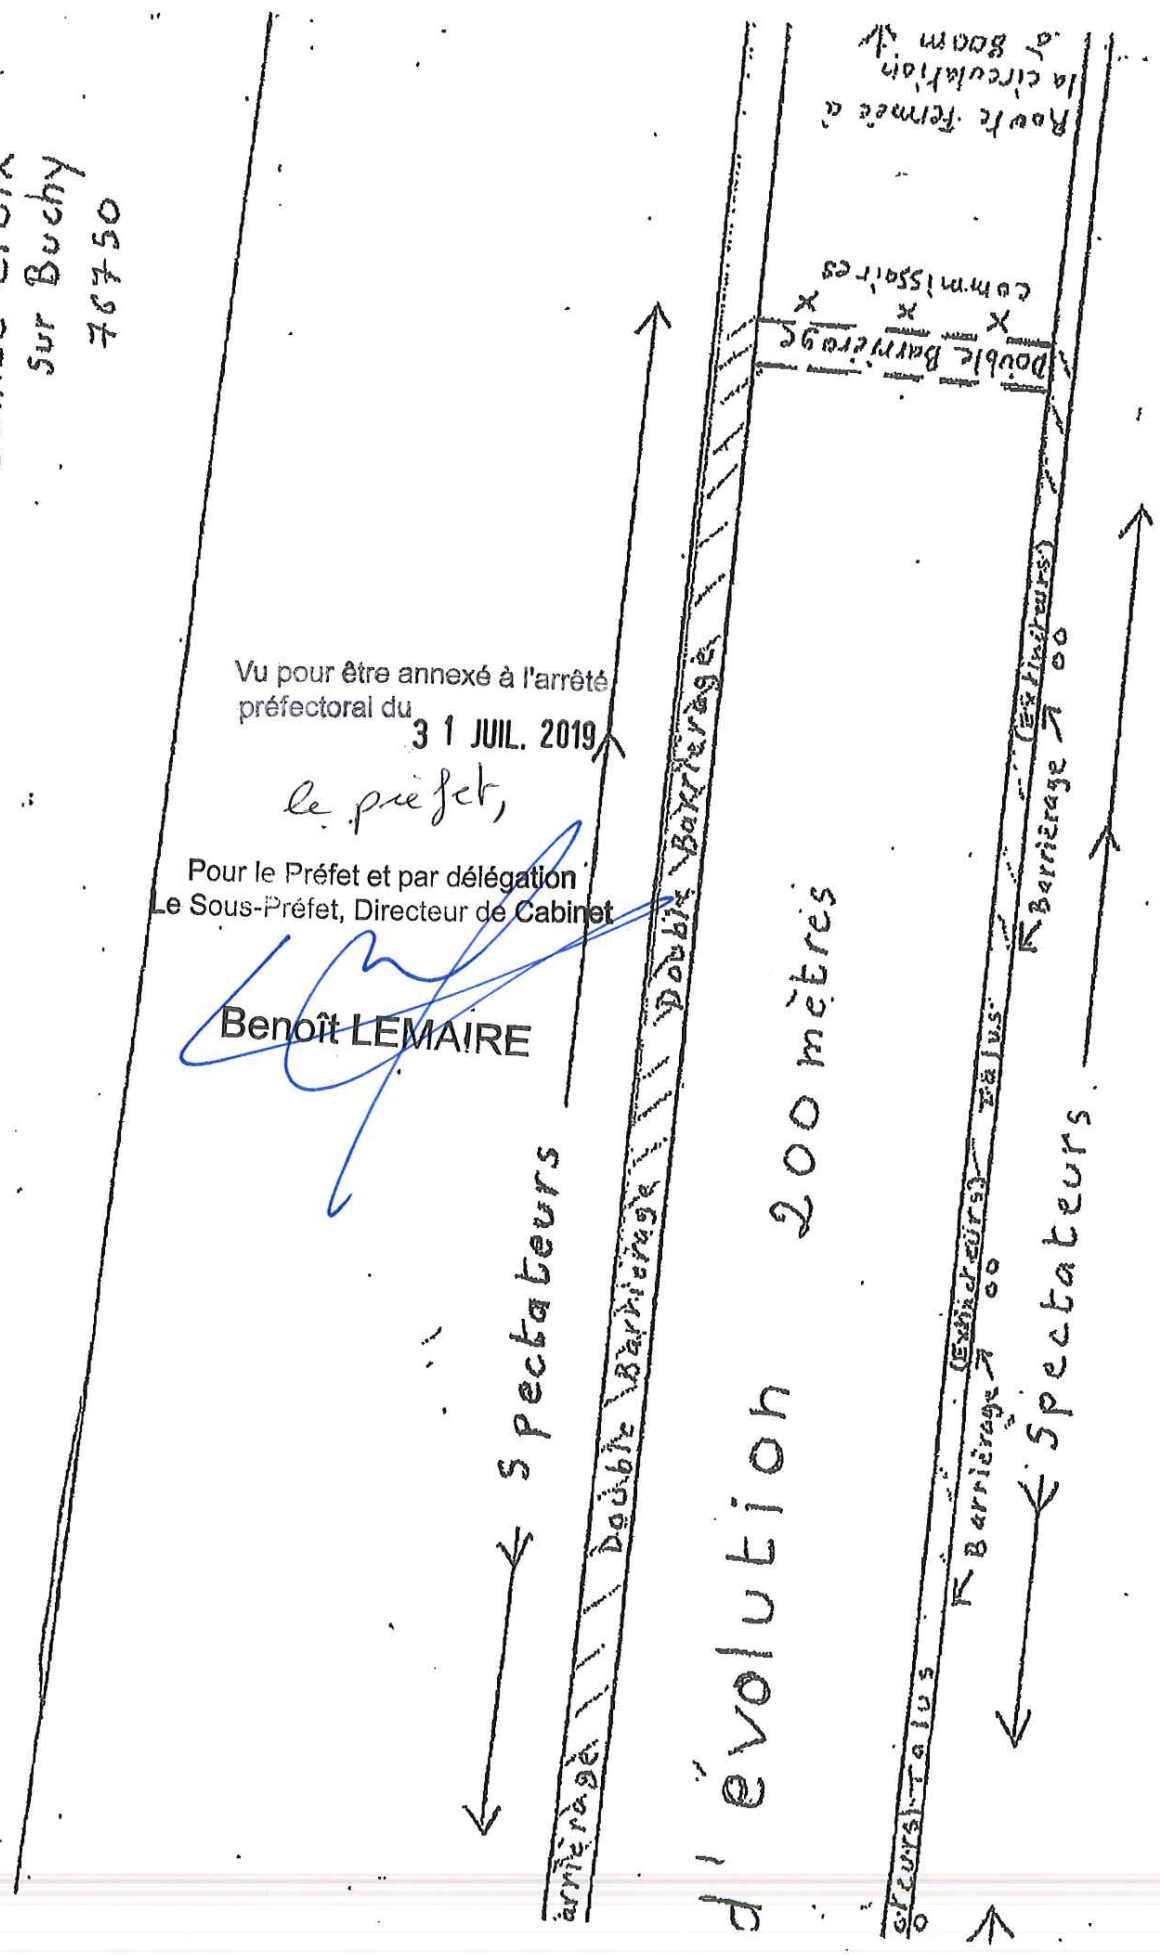 sur Buchy
76750
Vu pour être annexé à l'arrêté
préfectoral du
3 1 JUIL. 2019
le préfet,
Pour le Préfet et par délégation
Le Sous-Préfet, Directeur de Cabinet
Benoît LEMAIRE
Spectateurs
arrièrage Double Barrièrage Double Barrièrage
d'évolution 200 mètres
Route fermée à
la circulation
à 800m
commissaires
x x x
Double Barrièrage
Talus (Extincteurs) Talus (Extincteurs)
Barrièrage oo Barrièrage oo
Spectateurs